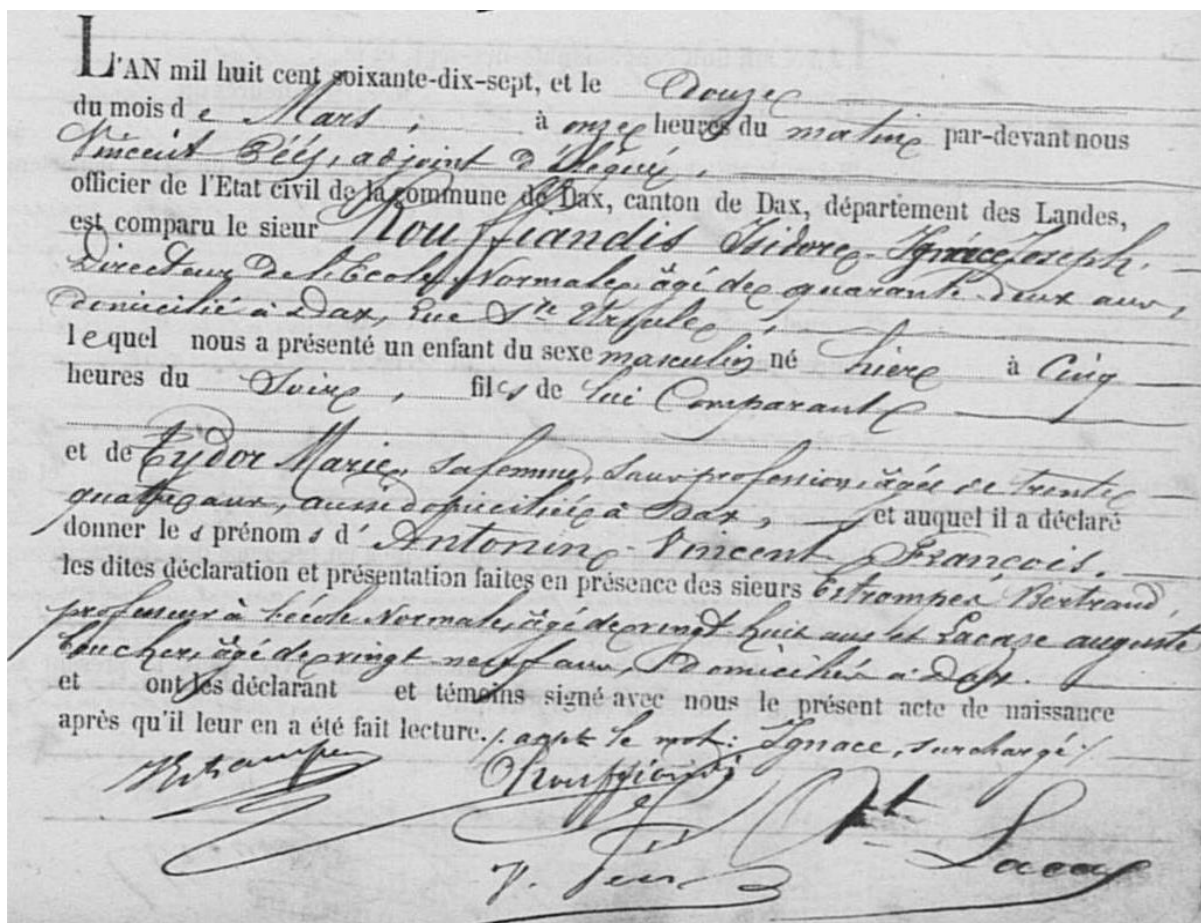 L'AN mil huit cent soixante-dix-sept, et le Douze
du mois de Mars, à onze heures du matin par-devant nous
Vincent Péés, adjoint délégué,
officier de l'Etat civil de la commune de Dax, canton de Dax, département des Landes,
est comparu le sieur Rouffiandis Isidore-Ignace Joseph.
Directeur de l'Ecole Normale, âgé de quarante-deux ans,
domicilié à Dax, rue Ste Ursule,
lequel nous a présenté un enfant du sexe masculin né hier à Cinq
heures du Soir, fils de lui Comparant
et de Eydor Marie, sa femme, sans profession, âgée de trente
quatre ans, aussi domiciliée à Dax, et auquel il a déclaré
donner les prénoms d'Antonin Vincent François.
les dites déclaration et présentation faites en présence des sieurs Estrompés Bertrand,
professeur à l'école Normale, âgé de vingt huit ans et Lacase auguste
boucher, âgé de vingt-neuf ans, domiciliés à Dax.
et ont les déclarant et témoins signé avec nous le présent acte de naissance
après qu'il leur en a été fait lecture. /. appt le mot: Ignace, surchargé /.
Rouffiandis
V. Péés
Lacase